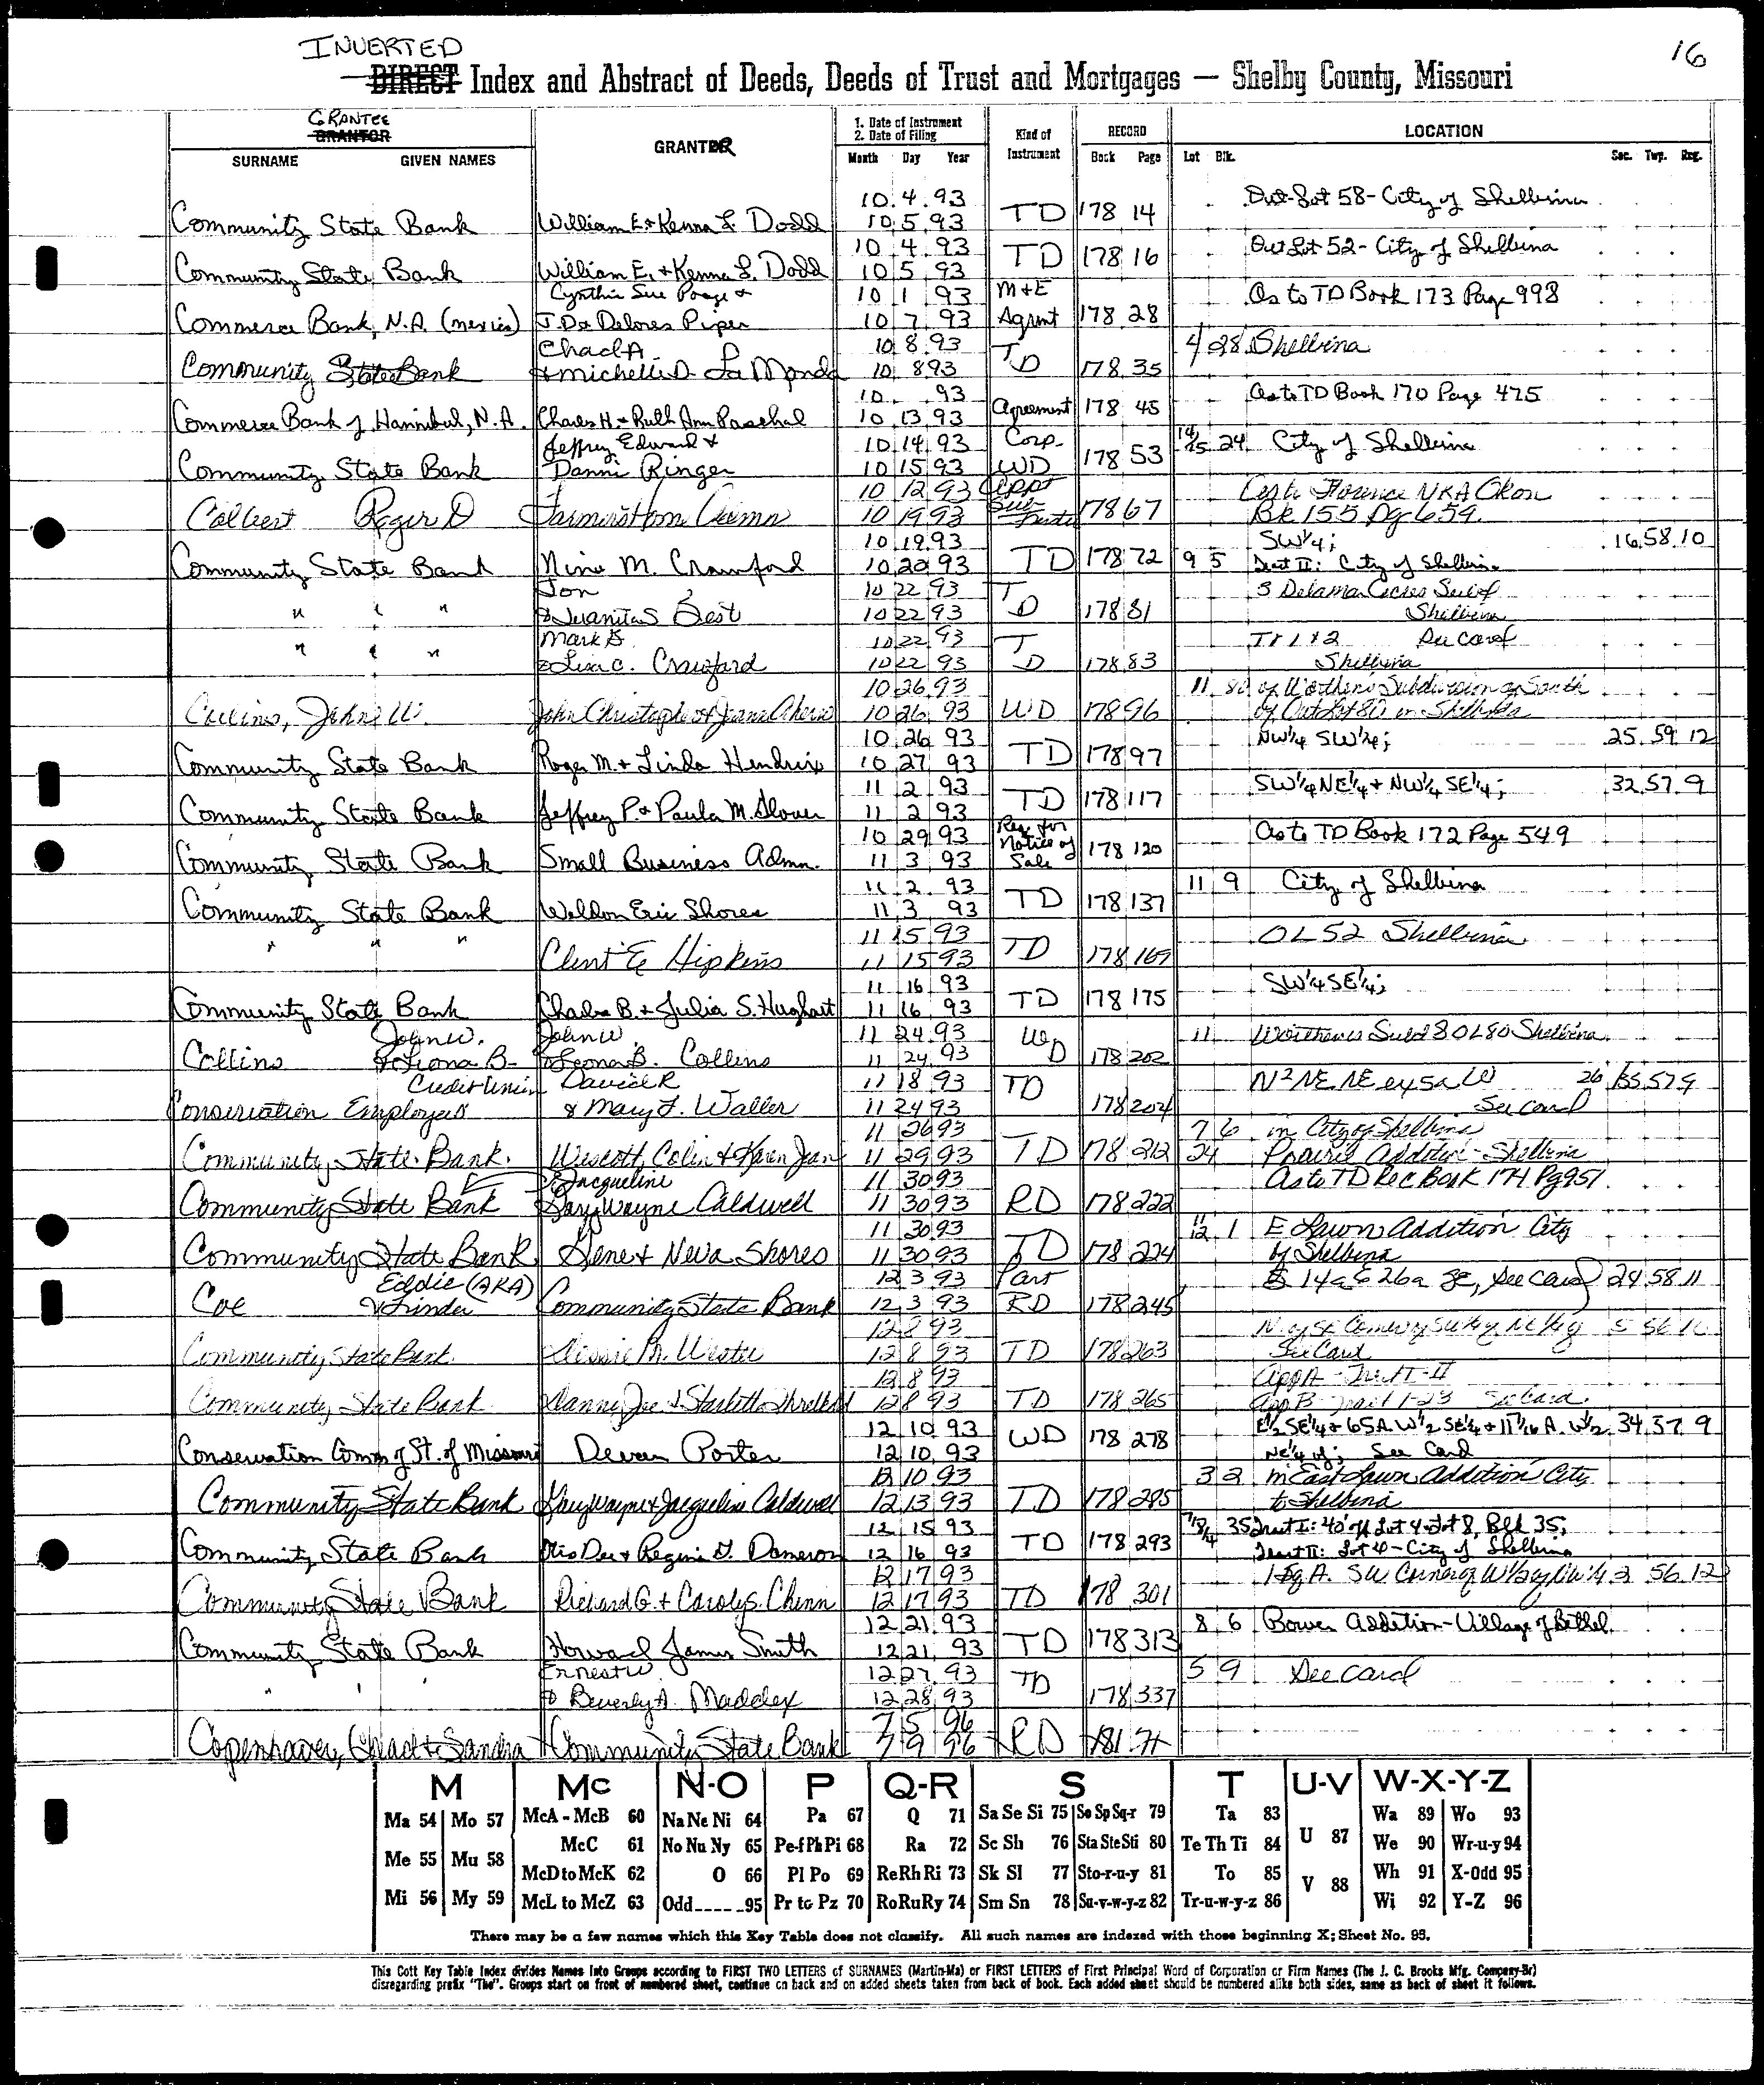 INVERTED
16
DIRECT Index and Abstract of Deeds, Deeds of Trust and Mortgages — Shelby County, Missouri
GRANTEE
GRANTOR
SURNAME GIVEN NAMES
GRANTOR
1. Date of Instrument
2. Date of Filing
Month Day Year
Kind of Instrument
RECORD
Book Page
LOCATION
Lot Blk. Sec. Twp. Rng.
10 4 93 Out Lot 58 - City of Shelbina
Community State Bank William E. + Kenna L. Dodd 10 5 93 TD 178 14
10 4 93 Out Lot 52 - City of Shelbina
Community State Bank William E. + Kenna L. Dodd 10 5 93 TD 178 16
Cynthia Sue Poage + 10 1 93 M+E As to TD Book 173 Page 998
Commerce Bank, N.A. (Mexico) J.D. + Delores Piper 10 7 93 Agmnt 178 28
Chad A. 10 8 93 4 28 Shelbina
Community State Bank + Michelle D. La Monda 10 8 93 TD 178 35
10 93 As to TD Book 170 Page 475
Commerce Bank of Hannibal, N.A. Charles H. + Ruth Ann Paschal 10 13 93 Agreement 178 45
Jeffrey Edward + 10 14 93 Corp. 14 15 24 City of Shelbina
Community State Bank Danni Ringer 10 15 93 WD 178 53
10 12 93 Appt Florence NKA
Colbert Roger D Farmers Home Admn 10 19 93 Sub 178 67 Bk 155 Pg 659
10 19 93 SW¼; 16 58 10
Community State Bank Nina M. Crawford 10 20 93 TD 178 72 9 5 Tract II: City of Shelbina
Jon 10 22 93 3 Delamar Acres
" " " + Juanita S Best 10 22 93 TD 178 81 Shelbina
Mark G. 10 22 93 Tr 1 + 2 See Card
" " " + Lisa C. Crawford 10 22 93 TD 178 83 Shelbina
10 26 93 11 80 of Worthens Subdivision of South
Collins, John W. John Christopher + 10 26 93 WD 178 96 of Out Lot 80 in Shelbina
10 26 93 NW¼ SW¼; 25 59 12
Community State Bank Roger M. + Linda Hendrix 10 27 93 TD 178 97
11 2 93 SW¼ NE¼ + NW¼ SE¼; 32 57 9
Community State Bank Jeffrey P. + Paula M. Glover 11 2 93 TD 178 117
10 29 93 Req for Notice of Sale As to TD Book 172 Page 549
Community State Bank Small Business Admn. 11 3 93 178 120
11 2 93 11 9 City of Shelbina
Community State Bank Weldon Eric Shores 11 3 93 TD 178 137
11 15 93 OL 52 Shelbina
" " " Clint E Hipkins 11 15 93 TD 178 167
11 16 93 SW¼ SE¼;
Community State Bank Charles B. + Julia S. Hughart 11 16 93 TD 178 175
John W. John W. 11 24 93 11 Worthens Subd S OL 80 Shelbina
Collins + Leona B. + Leona B. Collins 11 24 93 WD 178 202
Credit Union David R 11 18 93 TD N² NE NE ex 5a W 26 35 57 9
Conservation Employees + Mary L. Waller 11 24 93 178 204 See Card
11 26 93 7 6 in City of Shelbina
Community State Bank. Wescott, Colin + Karen Jean 11 29 93 TD 178 212 24 Prairie Addition - Shelbina
+ Jacqueline 11 30 93 As to TD Rec Book 174 Pg 951
Community State Bank Gary Wayne Caldwell 11 30 93 RD 178 222
11 30 93 11 12 1 E Lawn Addition City
Community State Bank Gene + Neva Shores 11 30 93 TD 178 224 of Shelbina
Eddie (AKA) 12 3 93 Part 14a E 26a SE, See Card 24 58 11
Coe + Linda Community State Bank 12 3 93 RD 178 245
12 8 93
Community State Bank 12 8 93 TD 178 263 See Card
12 8 93 App A - Tract I-II
Community State Bank Danny Joe + Starletta Threlkeld 12 8 93 TD 178 265 App B - Tract 1-23 See Card
12 10 93 E½ SE¼ + 65A. W½ SE¼ + 11 1/16 A. W½ 34 57 9
Conservation Comm of St. of Missouri Devan Porter 12 10 93 WD 178 278 NE¼ of; See Card
12 10 93 3 2 in East Lawn Addition City
Community State Bank Gary Wayne + Jacqueline Caldwell 12 13 93 TD 178 285 to Shelbina
12 15 93 35 Tract I: 40' off Lot 4 + Lot 8, Blk 35;
Community State Bank Otis Dee + Regina D. Dameron 12 16 93 TD 178 293 Tract II: Lot 4 - City of Shelbina
12 17 93 SW Corner of 2 56 12
Community State Bank Richard G. + Carolyn S. Chinn 12 17 93 TD 178 301
12 21 93 8 6 Bower Addition - Village of Bethel
Community State Bank Howard James Smith 12 21 93 TD 178 313
Ernest W. 12 27 93 5 9 See Card
" " " + Beverly A. Maddex 12 28 93 TD 178 337
7 5 96
Copenhaver, Chad + Sandra Community State Bank 7 9 96 RD 181 71
M Mc N-O P Q-R S T U-V W-X-Y-Z
Ma 54 Mo 57 McA - McB 60 Na Ne Ni 64 Pa 67 Q 71 Sa Se Si 75 So Sp Sq-r 79 Ta 83 U 87 Wa 89 Wo 93
McC 61 No Nu Ny 65 Pe-f Ph Pi 68 Ra 72 Sc Sh 76 Sta Ste Sti 80 Te Th Ti 84 We 90 Wr-u-y 94
Me 55 Mu 58 McD to McK 62 O 66 Pl Po 69 Re Rh Ri 73 Sk Sl 77 Sto-r-u-y 81 To 85 V 88 Wh 91 X-Odd 95
Mi 56 My 59 McL to McZ 63 Odd 95 Pr to Pz 70 Ro Ru Ry 74 Sm Sn 78 Su-v-w-y-z 82 Tr-u-w-y-z 86 Wi 92 Y-Z 96
There may be a few names which this Key Table does not classify. All such names are indexed with those beginning X; Sheet No. 95.
This Cott Key Table Index divides Names into Groups according to FIRST TWO LETTERS of SURNAMES (Martin-Ma) or FIRST LETTERS of First Principal Word of Corporation or Firm Names (The J. C. Brooks Mfg. Company-Br)
disregarding prefix "The". Groups start on front of numbered sheet, continue on back and on added sheets taken from back of book. Each added sheet should be numbered alike both sides, same as back of sheet it follows.